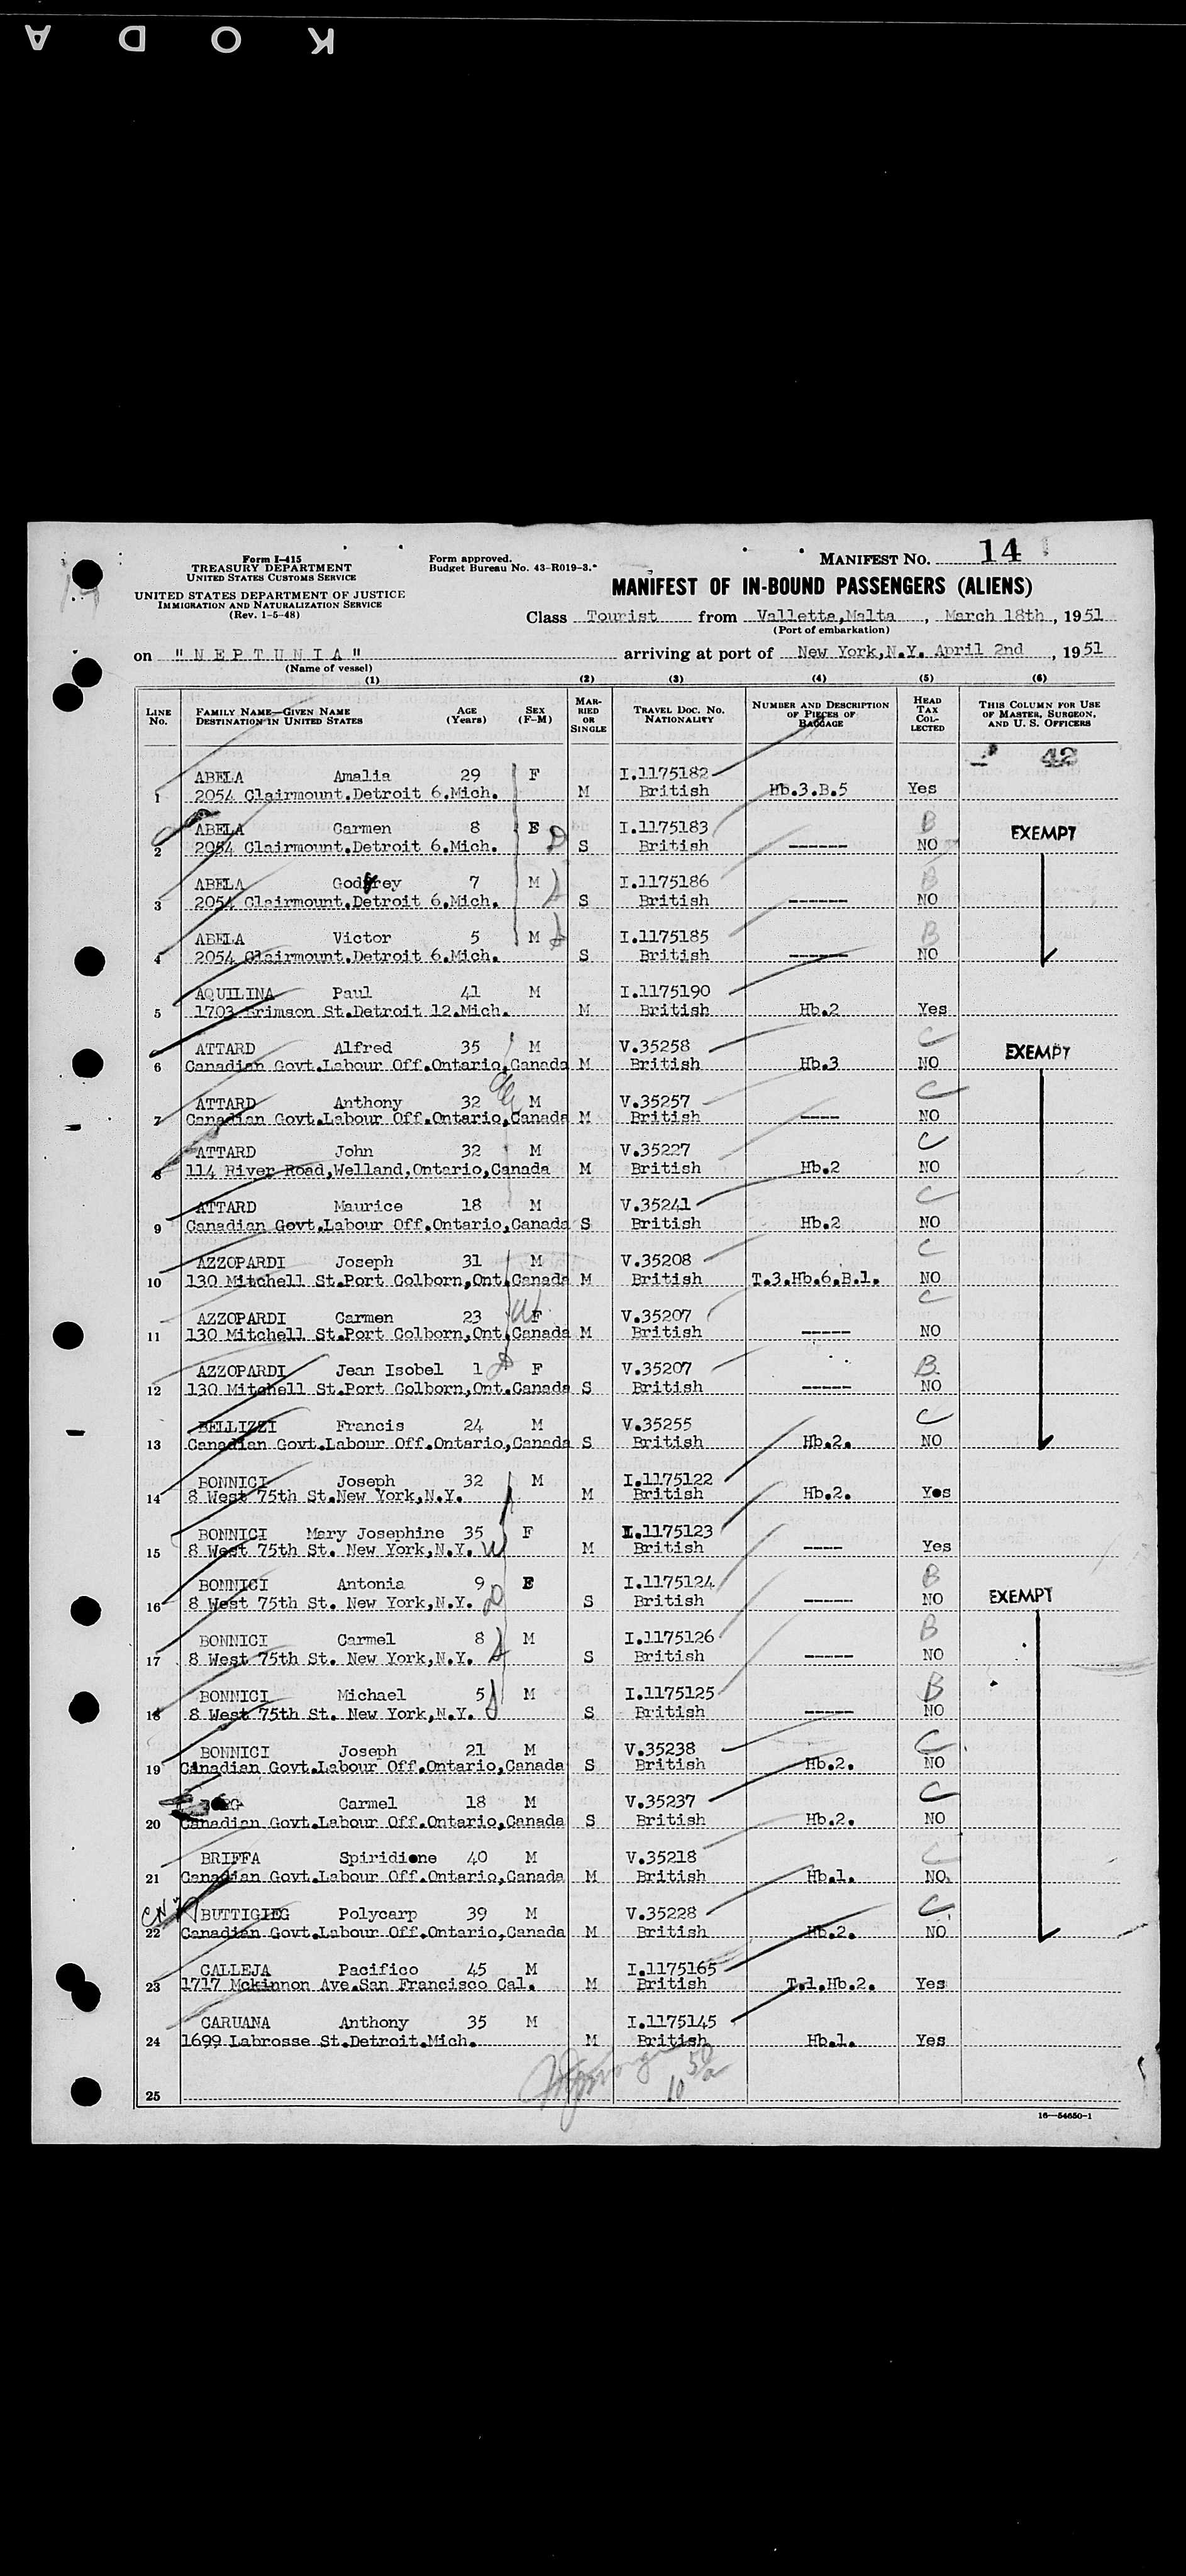 KODA
Form I-415
TREASURY DEPARTMENT
UNITED STATES CUSTOMS SERVICE
UNITED STATES DEPARTMENT OF JUSTICE
IMMIGRATION AND NATURALIZATION SERVICE
(Rev. 1-5-48)
Form approved.
Budget Bureau No. 43-R019-3.
MANIFEST NO. 14
MANIFEST OF IN-BOUND PASSENGERS (ALIENS)
Class Tourist from Vallette,Malta, March 18th, 1951
(Port of embarkation)
on "NEPTUNIA" arriving at port of New York,N.Y. April 2nd, 1951
(Name of vessel)
(1) (2) (3) (4) (5) (6)
LINE NO. FAMILY NAME—GIVEN NAME DESTINATION IN UNITED STATES AGE (YEARS) SEX (F-M) MARRIED OR SINGLE TRAVEL DOC. NO. NATIONALITY NUMBER AND DESCRIPTION OF PIECES OF BAGGAGE HEAD TAX COLLECTED THIS COLUMN FOR USE OF MASTER, SURGEON, AND U. S. OFFICERS
42
ABELA Amalia 29 F I.1175182
1 2054 Clairmount.Detroit 6.Mich. M British Hb.3.B.5 Yes
ABELA Carmen 8 F I.1175183 B EXEMPT
2 2054 Clairmount.Detroit 6.Mich. S British ------ NO
ABELA Godfrey 7 M I.1175186 B
3 2054 Clairmount.Detroit 6.Mich. S British ------ NO
ABELA Victor 5 M I.1175185 B
4 2054 Clairmount.Detroit 6.Mich. S British ------ NO
AQUILINA Paul 41 M I.1175190
5 1703 Brimson St.Detroit 12.Mich. M British Hb.2 Yes
ATTARD Alfred 35 M V.35258 C EXEMPT
6 Canadian Govt.Labour Off.Ontario,Canada M British Hb.3 NO
ATTARD Anthony 32 M V.35257 C
7 Canadian Govt.Labour Off.Ontario,Canada M British ---- NO
ATTARD John 32 M V.35227 C
8 114 River Road,Welland,Ontario,Canada M British Hb.2 NO
ATTARD Maurice 18 M V.35241 C
9 Canadian Govt.Labour Off.Ontario,Canada S British Hb.2 NO
AZZOPARDI Joseph 31 M V.35208 C
10 130 Mitchell St.Port Colborn,Ont.Canada M British T.3.Hb.6.B.1. NO
AZZOPARDI Carmen 23 W F V.35207 C
11 130 Mitchell St.Port Colborn,Ont.Canada M British ----- NO
AZZOPARDI Jean Isobel 1 F V.35207 B
12 130 Mitchell St.Port Colborn,Ont.Canada S British ----- NO
BELLIZZI Francis 24 M V.35255 C
13 Canadian Govt.Labour Off.Ontario,Canada S British Hb.2. NO
BONNICI Joseph 32 M I.1175122
14 8 West 75th St.New York,N.Y. M British Hb.2. Yes
BONNICI Mary Josephine 35 F I.1175123
15 8 West 75th St. New York,N.Y. W M British ---- Yes
BONNICI Antonia 9 F I.1175124 B EXEMPT
16 8 West 75th St. New York,N.Y. S British ----- NO
BONNICI Carmel 8 M I.1175126 B
17 8 West 75th St. New York,N.Y. S British ----- NO
BONNICI Michael 5 M I.1175125 B
18 8 West 75th St. New York,N.Y. S British ----- NO
BONNICI Joseph 21 M V.35238 C
19 Canadian Govt.Labour Off.Ontario,Canada S British Hb.2. NO
Carmel 18 M V.35237 C
20 Canadian Govt.Labour Off.Ontario,Canada S British Hb.2. NO
BRIFFA Spiridione 40 M V.35218 C
21 Canadian Govt.Labour Off.Ontario,Canada M British Hb.1. NO.
BUTTIGIEG Polycarp 39 M V.35228 C
22 Canadian Govt.Labour Off.Ontario,Canada M British Hb.2. NO
CALLEJA Pacifico 45 M I.1175165
23 1717 Mckinnon Ave.San Francisco Cal. M British T.1.Hb.2. Yes
CARUANA Anthony 35 M I.1175145
24 1699 Labrosse St.Detroit.Mich. M British Hb.1. Yes
25
16—54650-1